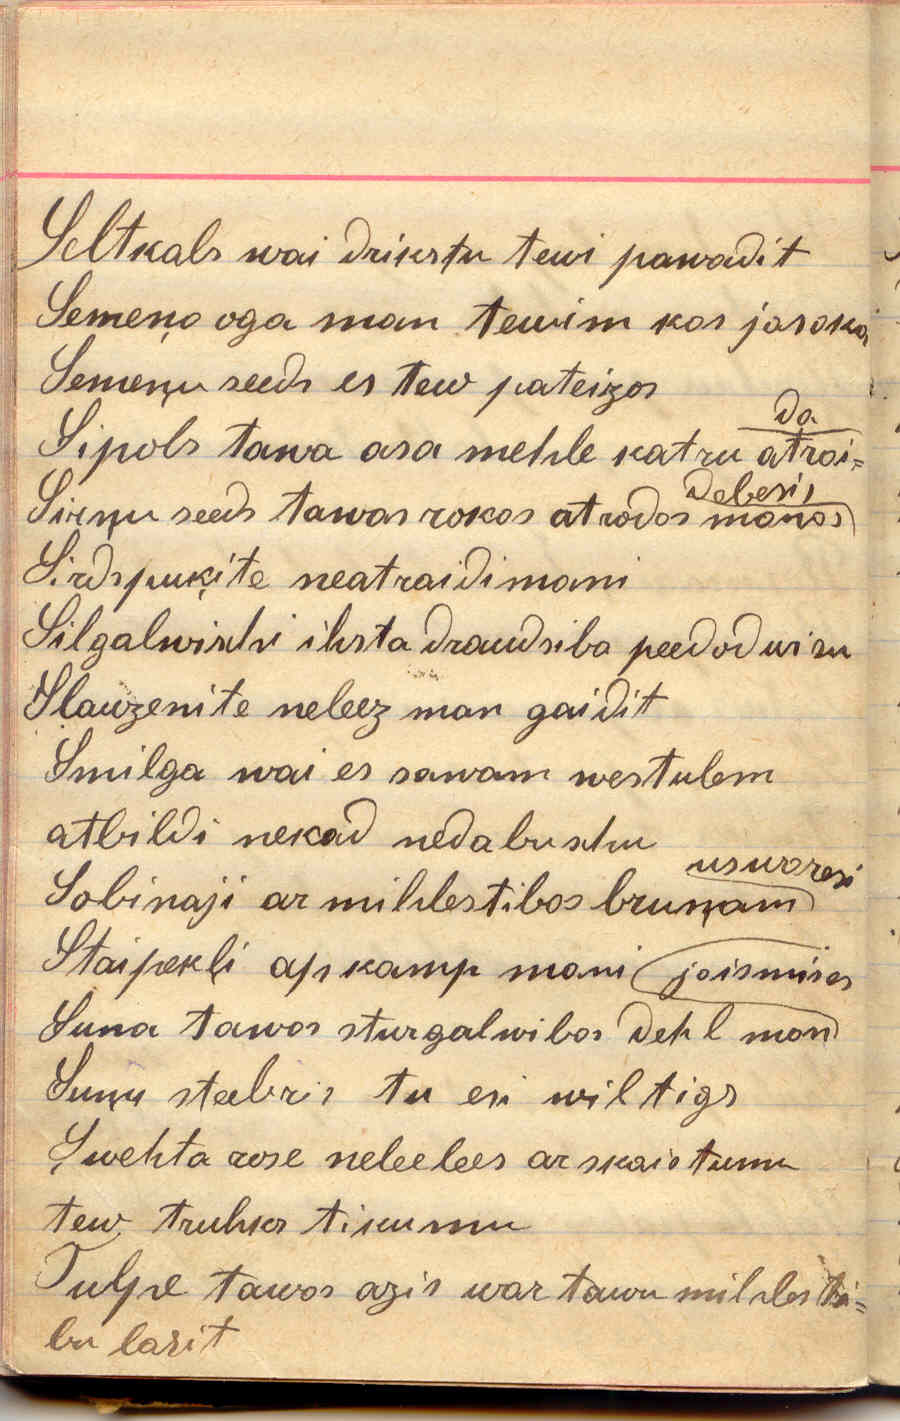 Seltkals wai drikstu tewi pawadit
Semeņo oga man tewim kas jasaka
Semeņu seeds es tew pateizos
Sipols tawa asa mehle katru atrai=
da
Sirņu seeds tawas rokas atrodas manas
debesis
Sirdspuķite neatraidi mani
Silgalwischi ihsta draudsiba peedod wisu
Slauzenite neleez man gaidit
Smilga wai es sawam westulem
atbildi nekad nedabuschu
Sobinaji ar mihlestibas bruņam
uswaresi
Staipekļi apkamp mani ja ismises
Suna tawas sturgalwibas dehl man
Suņu steebris tu esi wiltigs
Swehta rose neleelees ar skaistumu
tew truhkst tikumu
Tulpe tawas azis war tawu mihlesti=
bu lasit